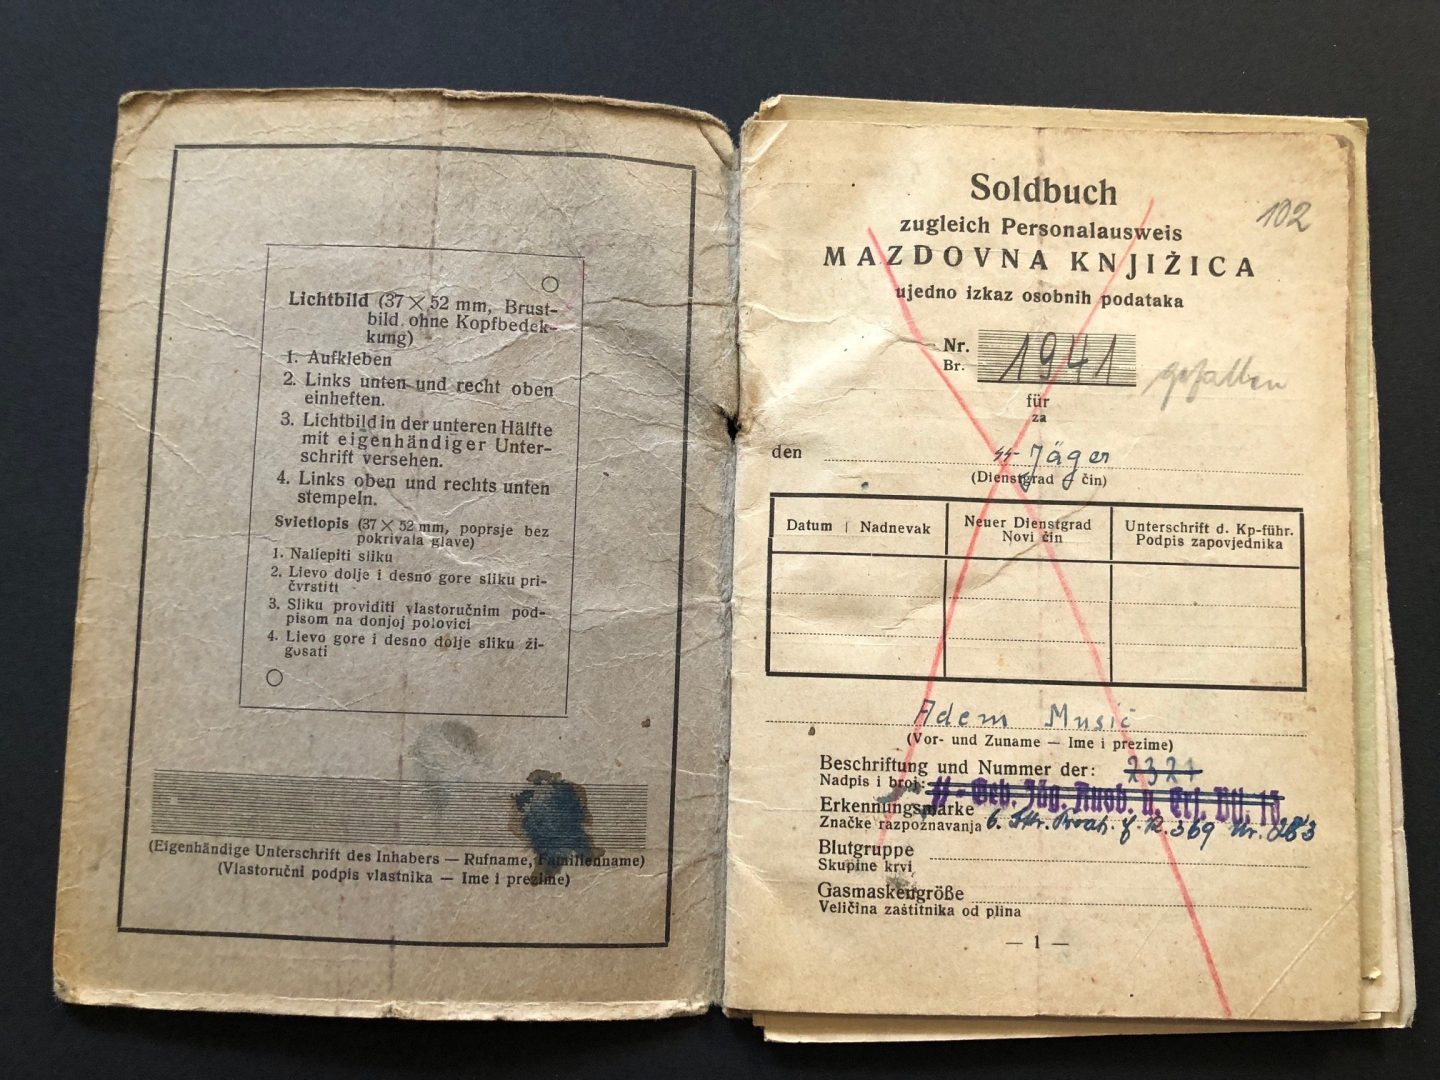 Lichtbild (37 × 52 mm, Brust-
bild, ohne Kopfbedek-
kung)
1. Aufkleben
2. Links unten und recht oben
einheften.
3. Lichtbild in der unteren Hälfte
mit eigenhändiger Unter-
schrift versehen.
4. Links oben und rechts unten
stempeln.
Svietlopis (37 × 52 mm, poprsje bez
pokrivala glave)
1. Naliepiti sliku
2. Lievo dolje i desno gore sliku pri-
čvrstiti
3. Sliku providiti vlastoručnim pod-
pisom na donjoj polovici
4. Lievo gore i desno dolje sliku ži-
gosati
(Eigenhändige Unterschrift des Inhabers — Rufname, Familienname)
(Vlastoručni podpis vlastnika — Ime i prezime)
102
Soldbuch
zugleich Personalausweis
MAZDOVNA KNJIŽICA
ujedno izkaz osobnih podataka
Nr. 1941
Br.
gefallen
für
za
den SS-Jäger
(Dienstgrad čin)
Datum | Nadnevak
Neuer Dienstgrad
Novi čin
Unterschrift d. Kp-führ.
Podpis zapovjednika
Adem Musić
(Vor- und Zuname — Ime i prezime)
Beschriftung und Nummer der: 2327
Nadpis i broj: SS-Geb. Jäg. Ausb. u. Ers. Btl. 13
Erkennungsmarke
Značke razpoznavanja 6. 369 Nr. 283
Blutgruppe
Skupine krvi
Gasmaskengröße
Veličina zaštitnika od plina
— 1 —